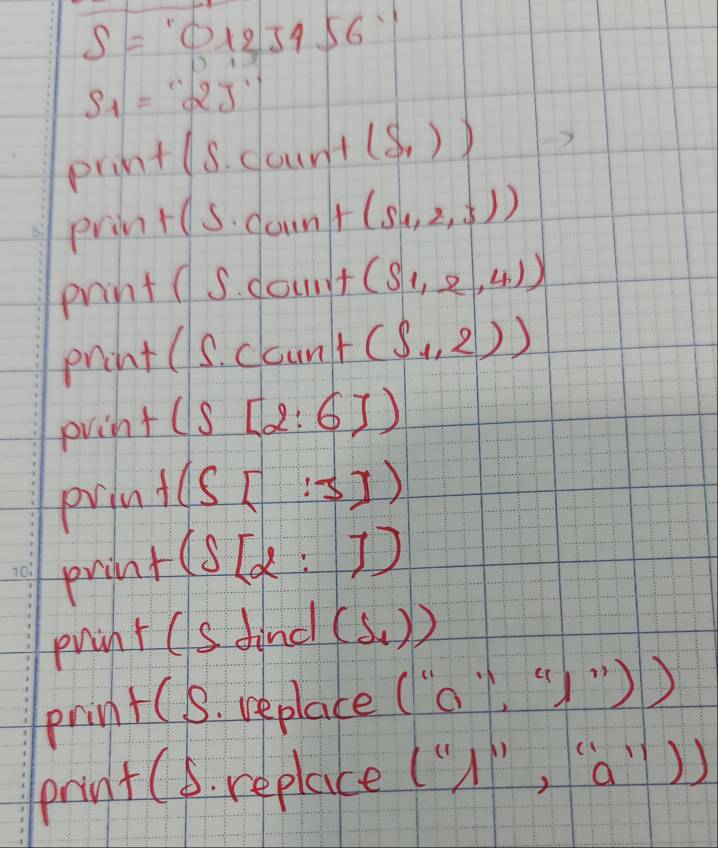 S = "0123456"
S1 = "23"
print(S.count(S1))
print(S.count(S1,2,3))
print(S.count(S1,2,4))
print(S.count(S1,2))
print(S[2:6])
print(S[ :3])
print(S[2: ])
print(S.find(S1))
print(S.replace("a","1"))
print(S.replace("1","a"))